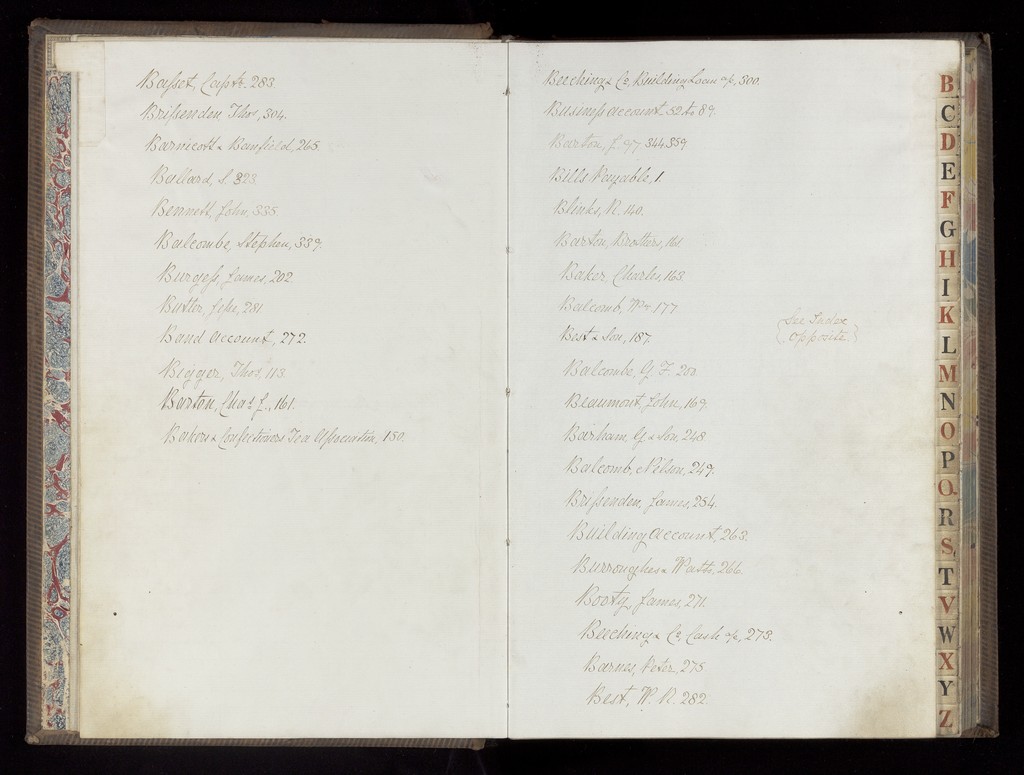 Basset, Captn. 283.
Brissenden, Thos, 304.
Barnicott & Banfield, 265.
Ballard, S. 323
Bennett, John, 335.
Balcombe, Stephen, 339.
Burgess, James, 202
Butler, John, 281
Band Account, 272.
Bigger, Thos, 113.
Barton, Chas J., 161.
Bakers & Confectioners Tea Association, 150.
Beeching & Co, Building Loan a/c, 300.
Business Account 52 to 89.
Barton, J. 97, 344.359
Bills Payable, 1.
Blinks, R. 140.
Barton, Brothers, 161.
Baker, Charles, 163.
Balcomb, Wm 177
Best & Son, 187.
(See Index
Opposite.)
Balcombe, G. F. 200
Beaumont, John, 169.
Barham, G & Son, 248
Balcomb, Nelson, 249.
Brissenden, James, 254.
Building Account, 263.
Burroughes & Watts, 266.
Booty, James, 271.
Beeching & Co, Cash a/c, 273.
Barnes, Peter, 275
Best, W. R. 282.
B
C
D
E
F
G
H
I
K
L
M
N
O
P
Q
R
S
T
V
W
X
Y
Z